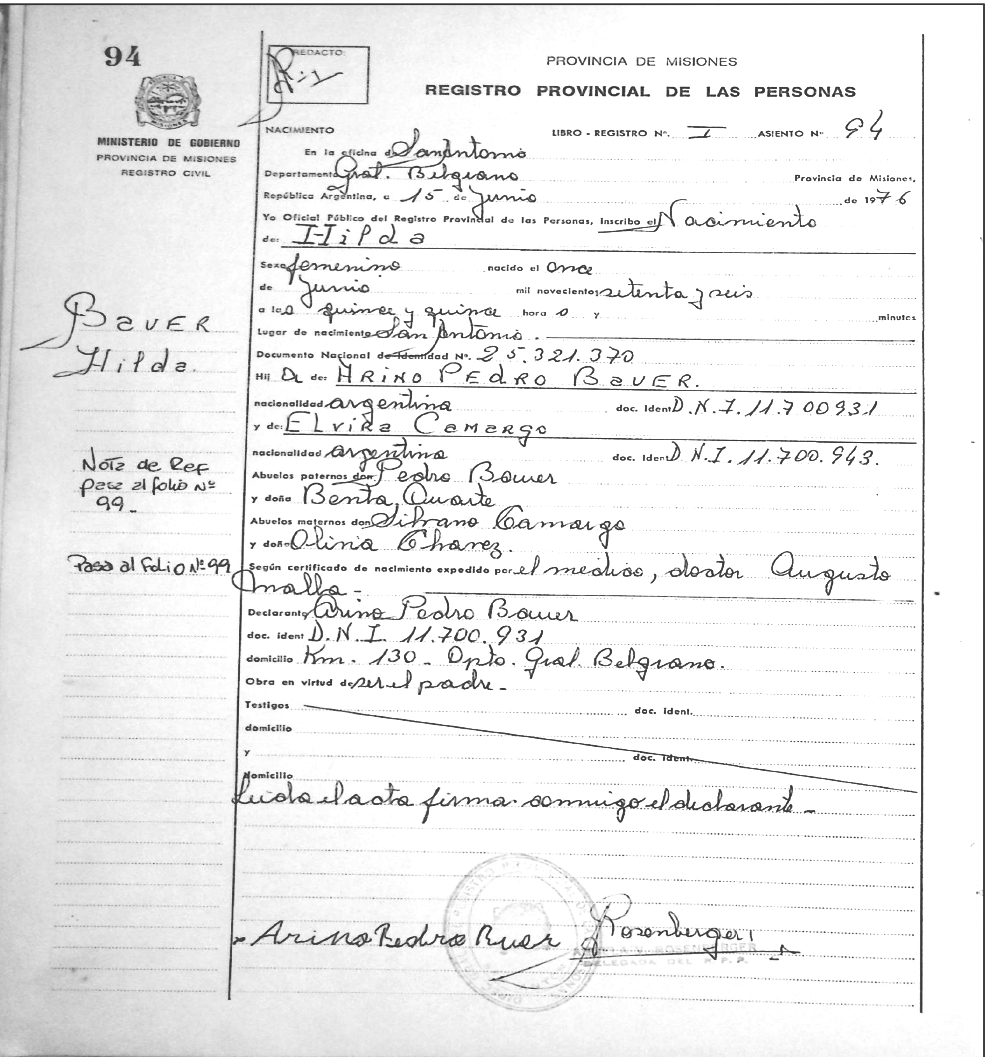 94
REDACTO:
PROVINCIA DE MISIONES
REGISTRO PROVINCIAL DE LAS PERSONAS
MINISTERIO DE GOBIERNO
PROVINCIA DE MISIONES
REGISTRO CIVIL
NACIMIENTO LIBRO - REGISTRO Nº. I ASIENTO Nº 94
En la oficina de San Antonio
Departamento Gral. Belgrano Provincia de Misiones,
República Argentina, a 15 de Junio de 1976
Yo Oficial Público del Registro Provincial de las Personas, Inscribo el Nacimiento
de: Hilda
Sexo femenino nacido el once
de Junio mil novecientos setenta y seis
a las quince y quince hora s y minutos
Lugar de nacimiento San Antonio.
Documento Nacional de Identidad Nº. 25.321.370
Hij a de: ARINO PEDRO BAUER.
nacionalidad argentina doc. Ident D.N.I. 11.700931
y de: ELVIRA CAMARGO
nacionalidad argentina doc. Iden D.N.I. 11.700.943.
Abuelos paternos don Pedro Bauer
y doña Benta Duarte
Abuelos maternos don Silvano Camargo
y doña Olina Chavez.
Según certificado de nacimiento expedido por el médico, doctor Augusto
Malla -
Declarante Arino Pedro Bauer
doc. ident D.N.I. 11.700.931
domicilio Km. 130 - Dpto. Gral. Belgrano.
Obra en virtud de ser el padre -
Testigos doc. ident.
domicilio
y doc. ident.
domicilio
Leida el acta firma conmigo el declarante -
BAUER
Hilda.
Nota de Ref
pase al folio Nº
99 -
Pasa al Folio Nº 99
Arino Pedro Buer
Rosenberger
ROSENBERGER
DELEGADA DEL R.P.P.